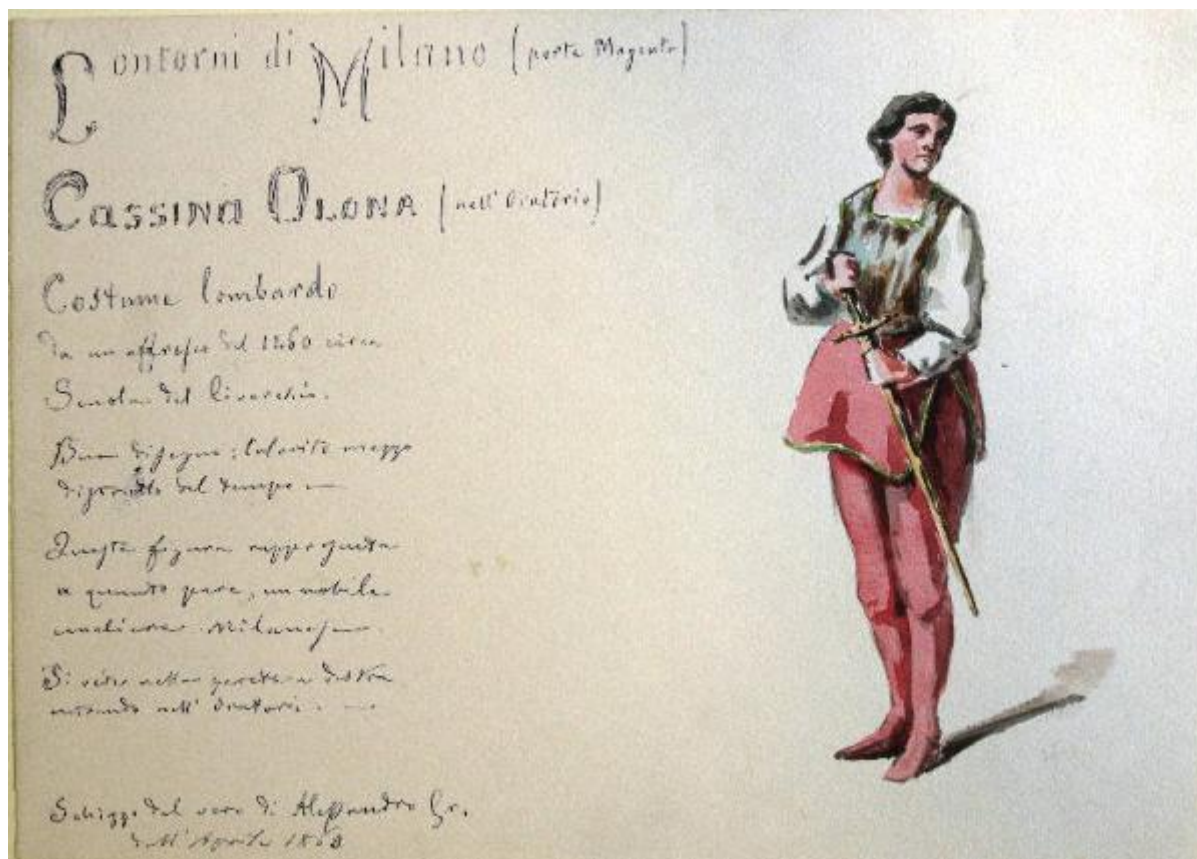 Contorni di Milano (porta Magenta)
Cassina Olona (nell' Oratorio)
Costume lombardo
da un affresco del 1460 circa
Scuola del Civerchio.
Buon disegno; Colorito mezzo
distrutto dal tempo —
Questa figura rappresenta
a quanto pare, un nobile
cavaliere Milanese —
Si vede nella parete a destra
entrando nell' Oratorio. —
Schizzo dal vero di Alessandro Gr.
dell' Aprile